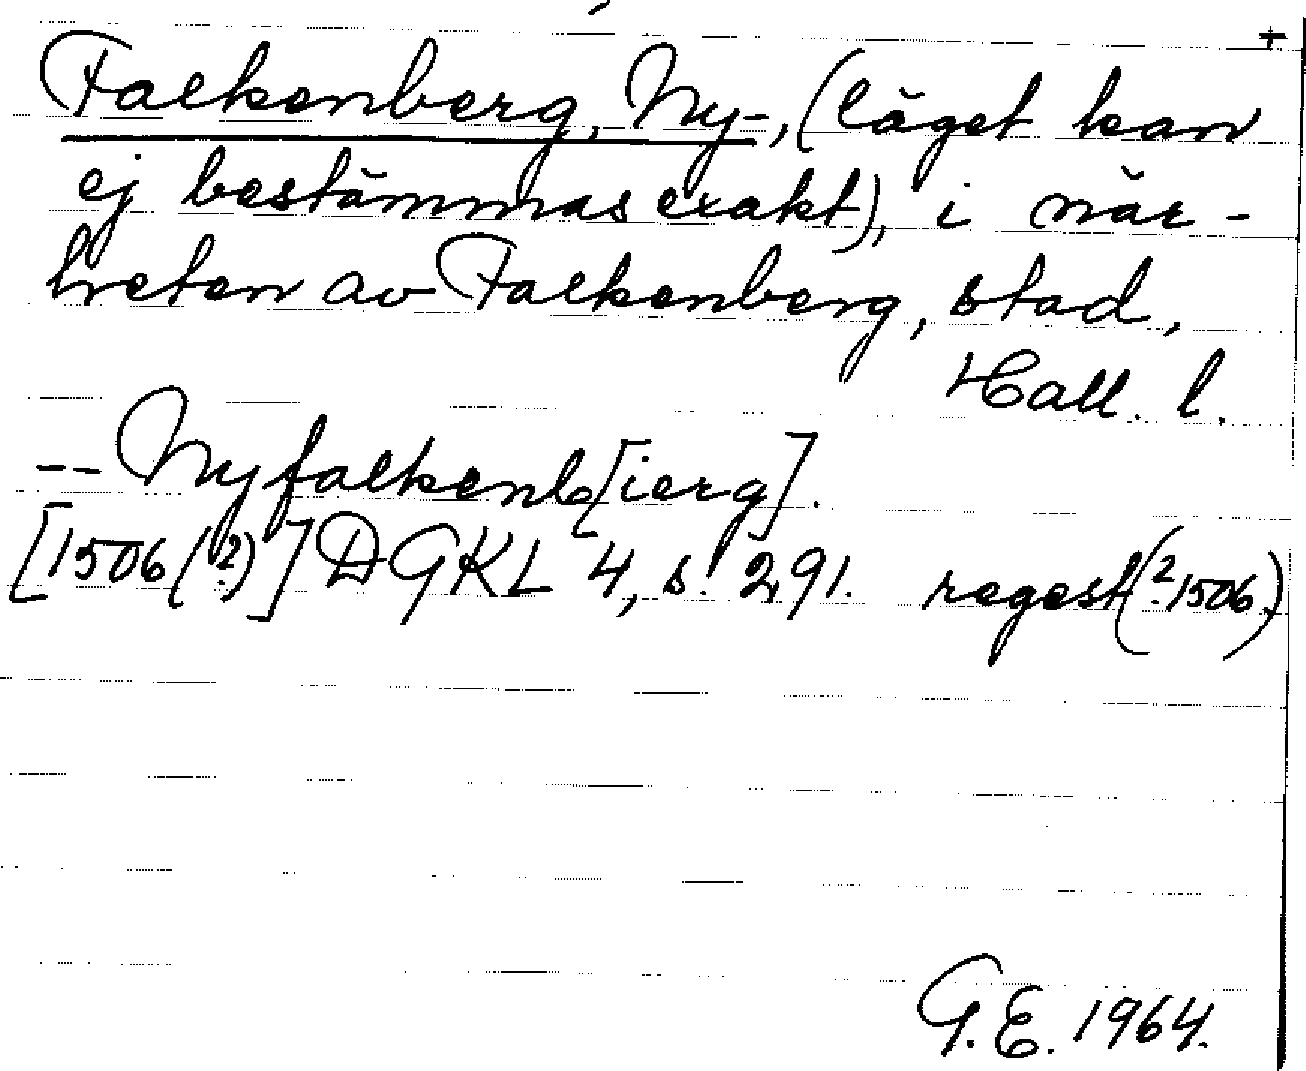 +
Falkenberg, Ny-, (läget kan
ej bestämmas exakt), i när-
heten av Falkenberg, stad,
Hall. l.
-- Nyfalkenb[ierg].
[1506(?)] DGKL 4, s. 291. regest(?1506)
G.E. 1964.